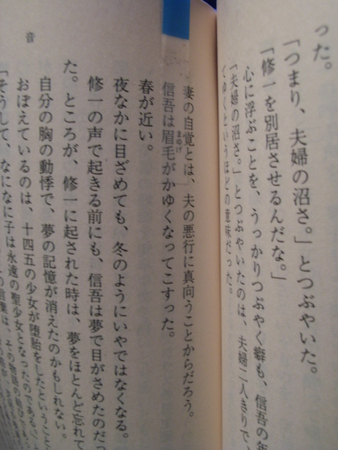 った。
「つまり、夫婦の沼さ。」とつぶやいた。
「修一を別居させるんだな。」
心に浮ぶことを、うっかりつぶやく癖も、信吾の年
「夫婦の沼さ。」とつぶやいたのは、夫婦二人きりで、
というほどの意味だった。
妻の自覚とは、夫の悪行に真向うことからだろう。
信吾は眉毛がかゆくなってこすった。
まゆげ
春が近い。
夜なかに目ざめても、冬のようにいやではなくなる。
修一の声で起きる前にも、信吾は夢で目がさめたのだっ
た。ところが、修一に起された時は、夢をほとんど忘れて
自分の胸の動悸で、夢の記憶が消えたのかもしれない。
おぼえているのは、十四五の少女が堕胎をしたということ
「そうして、なになに子は永遠の聖少女となったのである
音